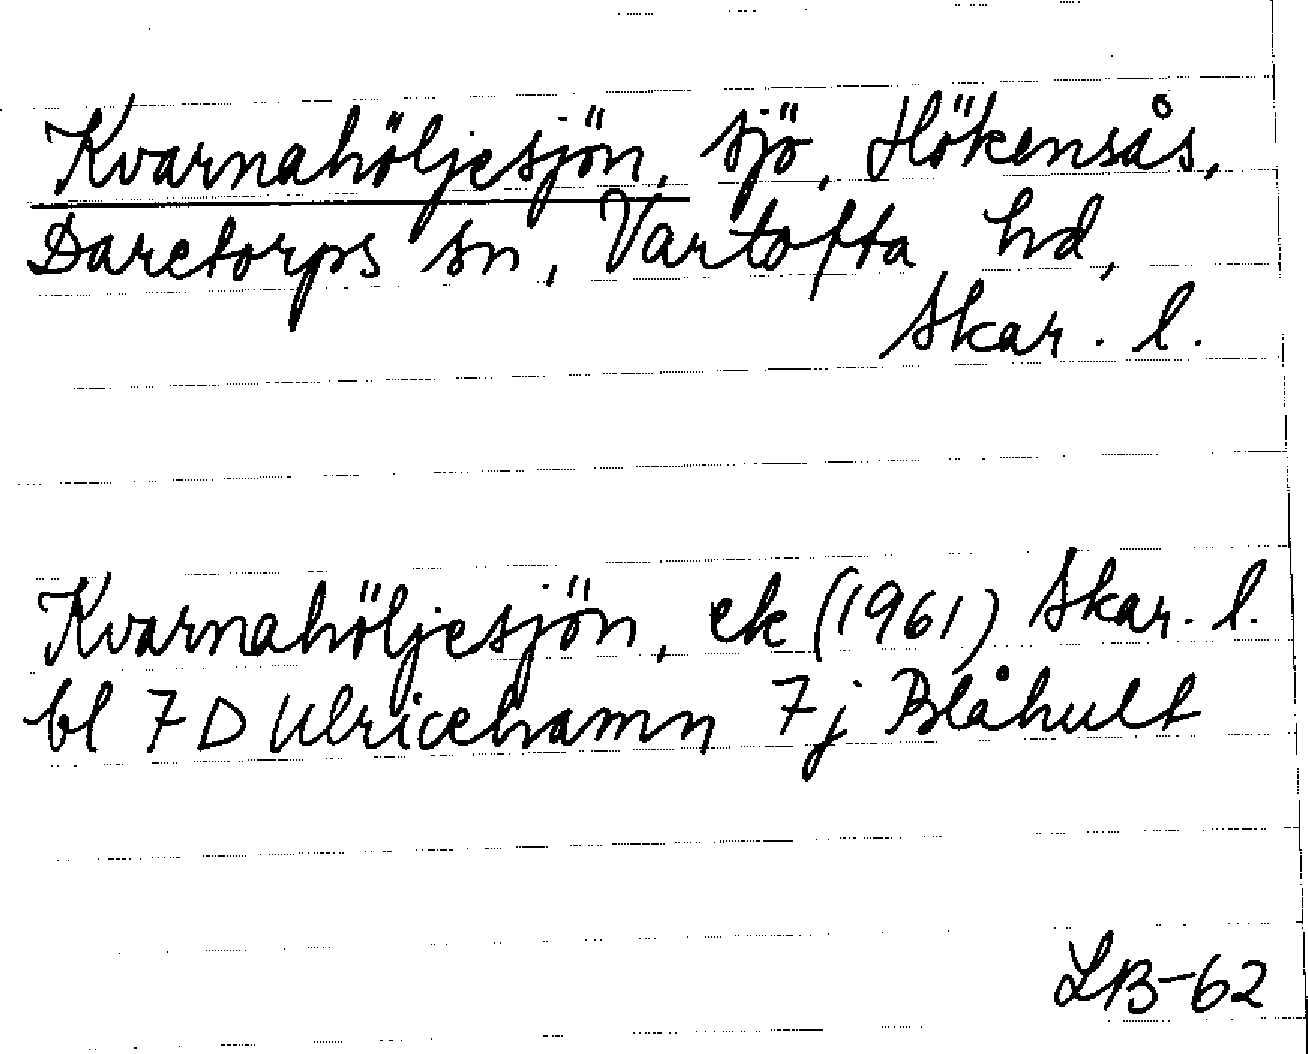 Kvarnahöljesjön, sjö, Hökensås,
Daretorps sn, Vartofta hd,
Skar. l.
Kvarnahöljesjön, ek (1961) Skar. l.
bl 7 D Ulricehamn 7 j Blåhult
LB-62